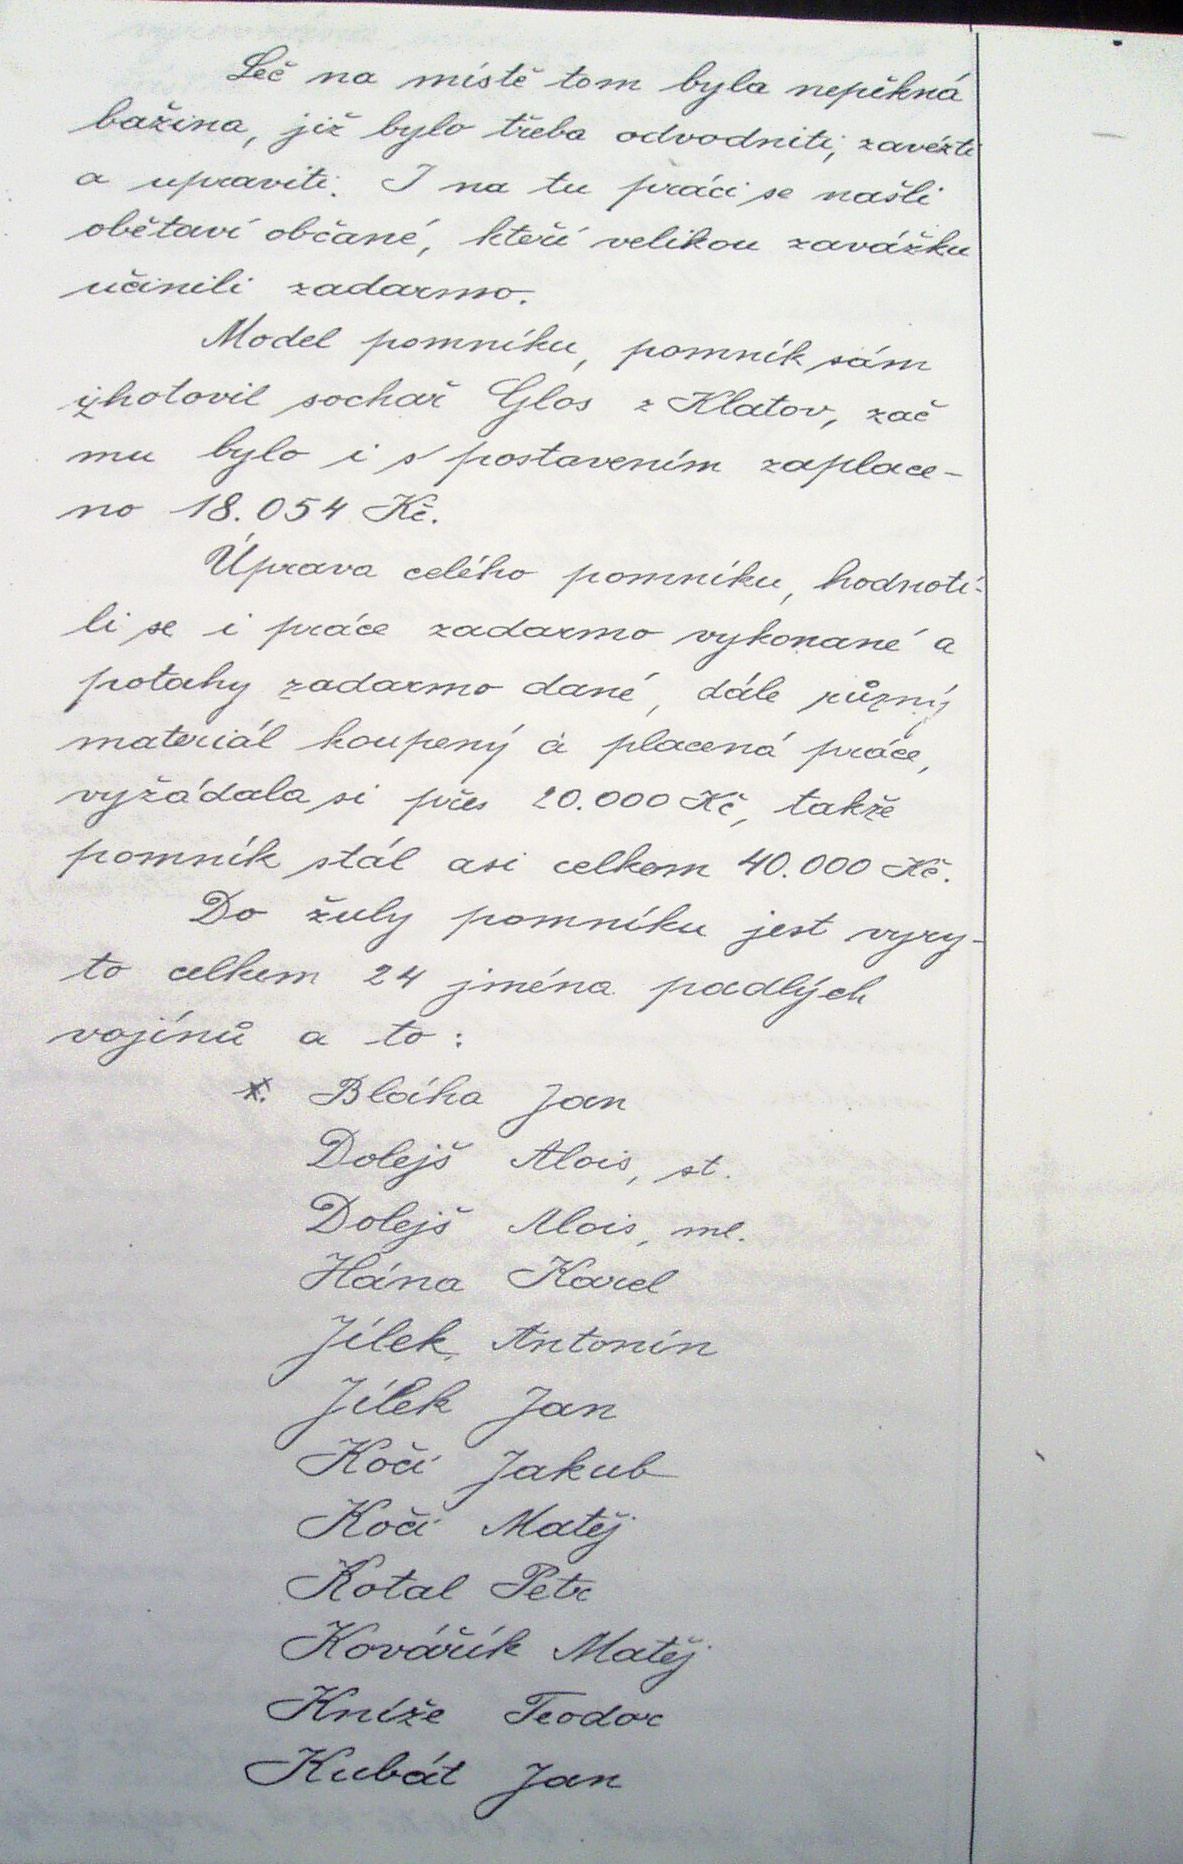 Leč na místě tom byla nepěkná
bažina, již bylo třeba odvodniti, zavézti
a upraviti. I na tu práci se našli
obětaví občané, kteří velikou zavážku
učinili zadarmo.
Model pomníku, pomník sám
zhotovil sochař Glos z Klatov, zač
mu bylo i s postavením zaplace-
no 18.054 Kč.
Úprava celého pomníku, hodnotí-
li se i práce zadarmo vykonané a
potahy zadarmo dané, dále různý
materiál koupený a placená práce,
vyžádala si přes 20.000 Kč, takže
pomník stál asi celkem 40.000 Kč.
Do žuly pomníku jest vyry-
to celkem 24 jména padlých
vojínů a to:
Bláha Jan
Dolejš Alois, st.
Dolejš Alois, ml.
Hána Karel
Jílek Antonín
Jílek Jan
Kočí Jakub
Kočí Matěj
Kotal Petr
Kovářík Matěj
Kníže Teodor
Kubát Jan